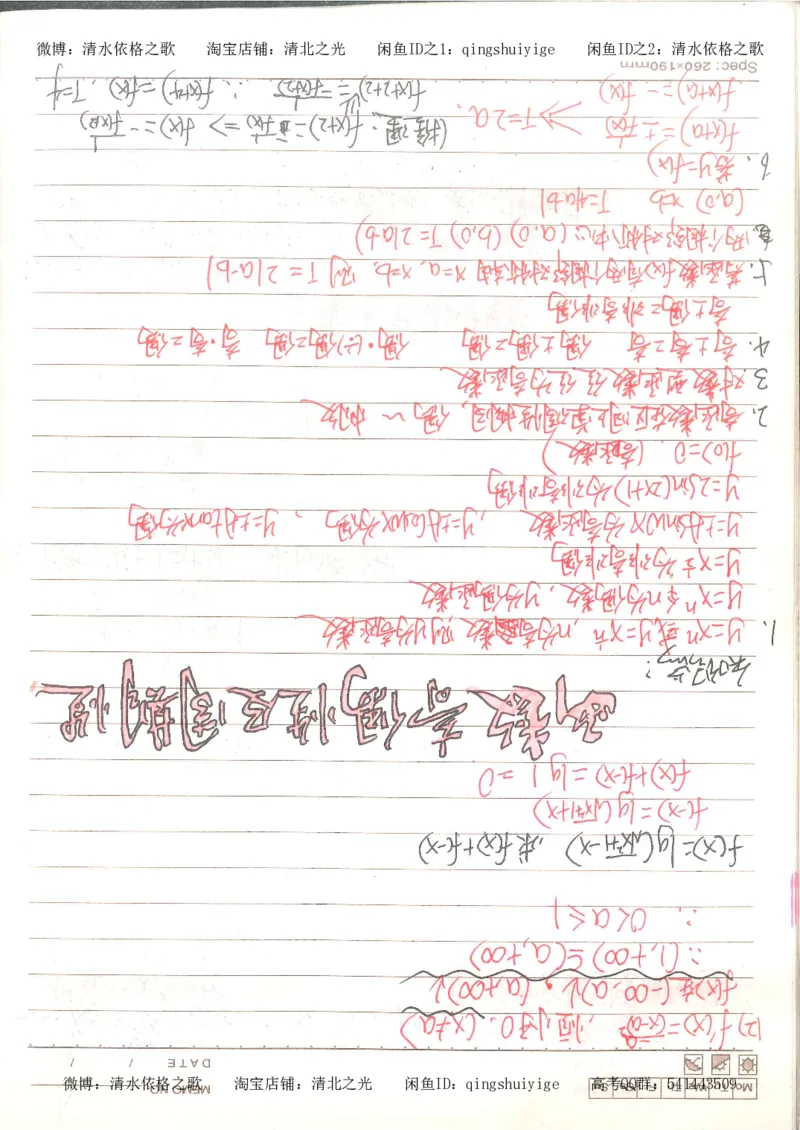 微博：清水依格之歌 淘宝店铺：清北之光 闲鱼ID之1：qingshuiyige 闲鱼ID之2：清水依格之歌
MEMO NO.
DATE / /
(2) f'(x)=-a/(x-a)², 恒小于0. (x≠a)
f(x)在(-∞,a)↓, (a,+∞)↓
∴ (1,+∞)⊆(a,+∞)
∴ 0<a≤1
f(x)=lg(√x²+1-x) ,求f(x)+f(-x)
f(-x)=lg(√x²+1+x)
f(x)+f(-x)=lg1=0
函数奇偶性及周期性
1. y=xⁿ或y=x^(1/n), n为奇数,则y为奇函数
y=xⁿ 中n为偶数, y为偶函数
y=x^(1/2)为非奇非偶
y=±Asinωx为奇函数, y=±Acosωx为偶, y=±Atanx为偶
y=2sin(2x+1)为非奇非偶
f(0)=0 (奇函数)
2. 奇函数在区间上单调性相同, 偶~相反
3. 对数型函数往往为奇函数
4. 奇±奇=奇 偶±偶=偶 偶·(÷)偶=偶 奇·奇=偶
奇±偶=非奇非偶
5. 若函数f(x)有两个相邻对称轴x=a, x=b, 则T=2|a-b|
两个相邻对称中心(a,0) (b,0) T=2|a-b|
(a,0) x=b T=4|a-b|
6. 若y=f(x)
f(x+a)=±1/f(x)
f(x+a)=-f(x) ⇒ T=2a.
f(x+2)=-1/f(x) ⇒ f(x)=-1/f(x+2)
f(x+2+2)=-1/f(x+2) ∴ f(x+4)=f(x) T=4
Spec: 260×190mm
微博：清水依格之歌 淘宝店铺：清北之光 闲鱼ID：qingshuiyige 高考QQ群：541443509